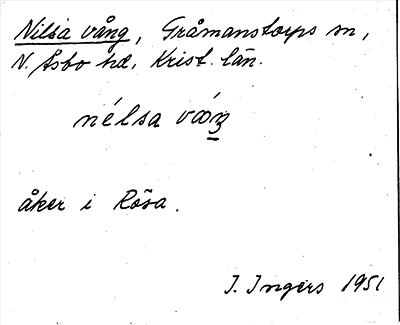 Nilsa vång, Gråmanstorps sn,
N. Åsbo hd, Krist. län.
nélsa vóŋ
åker i Rösa.
I. Ingers 1951